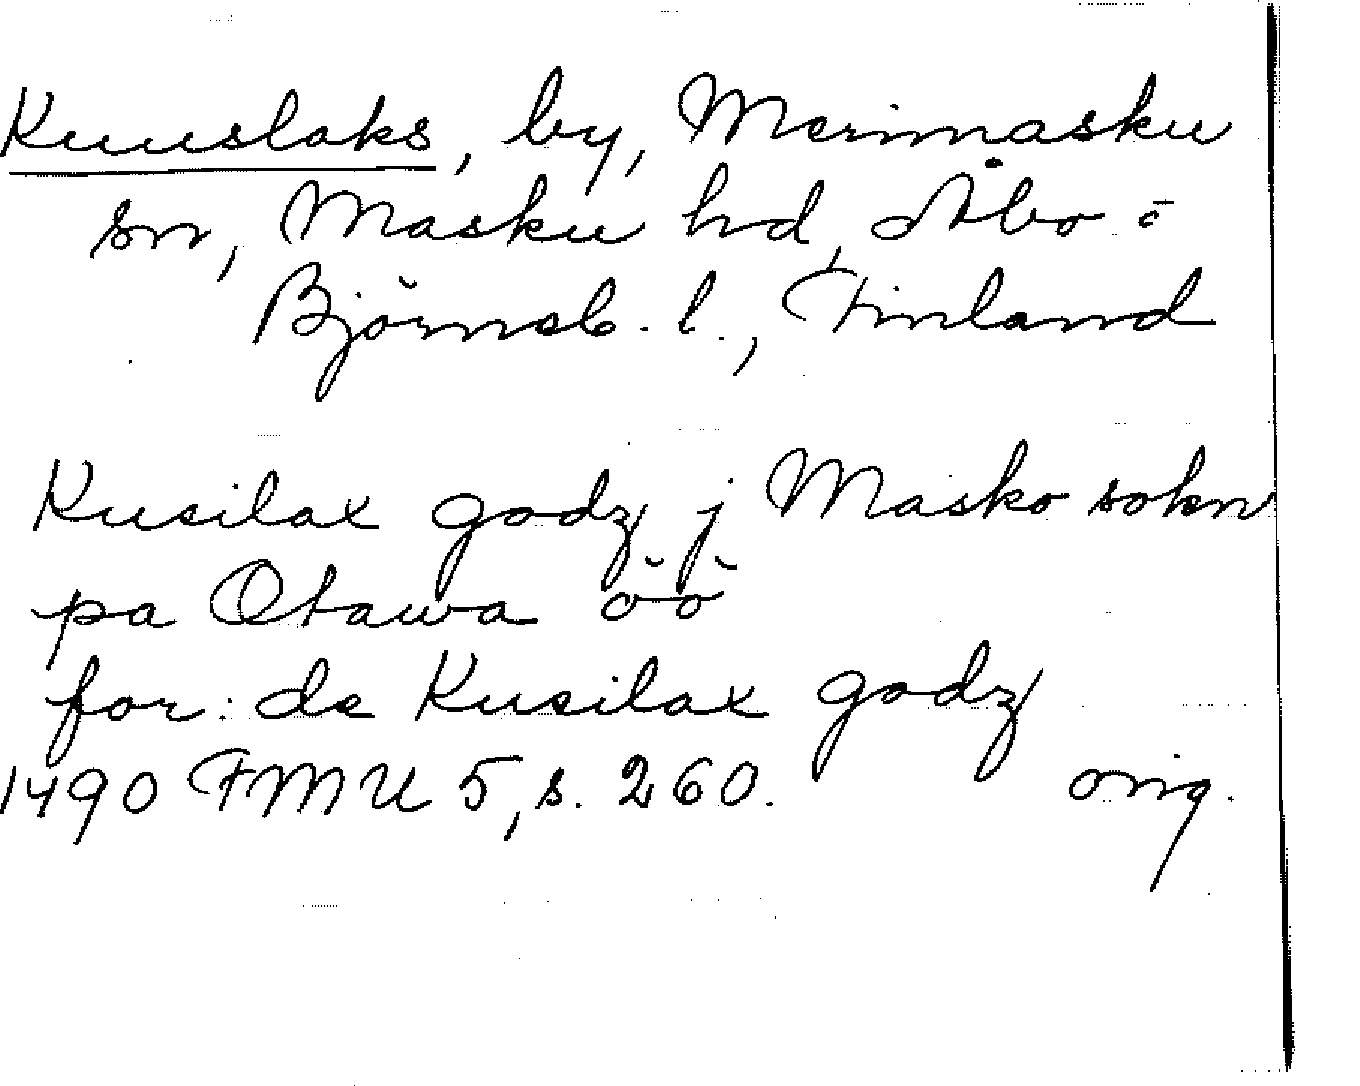 Kuuslaks, by, Merimasku
sn, Masku hd, Åbo o
Björneb. l., Finland
Kusilax godz j Masko sokn
pa Otawa öö
for: de Kusilax godz
1490 FMU 5, s. 260. orig.